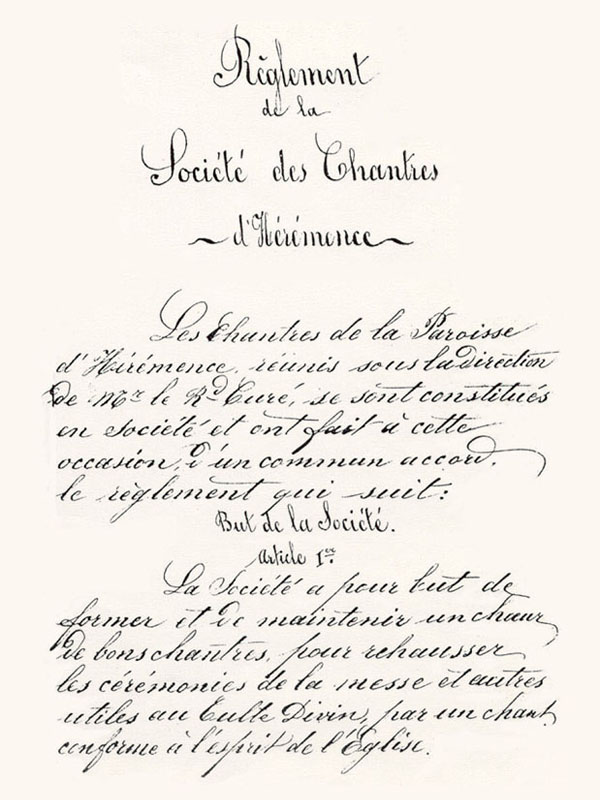 Règlement
de la
Société des Chantres
~ d'Hérémence ~
Les Chantres de la Paroisse
d'Hérémence, réunis sous la direction
de Mr le Rd Curé, se sont constitués
en société et ont fait à cette
occasion, d'un commun accord,
le règlement qui suit:
But de la Société.
Article Ier.
La Société a pour but de
former et de maintenir un chœur
de bons chantres, pour rehausser
les cérémonies de la messe et autres
utiles au Culte Divin, par un chant
conforme à l'esprit de l'Église.